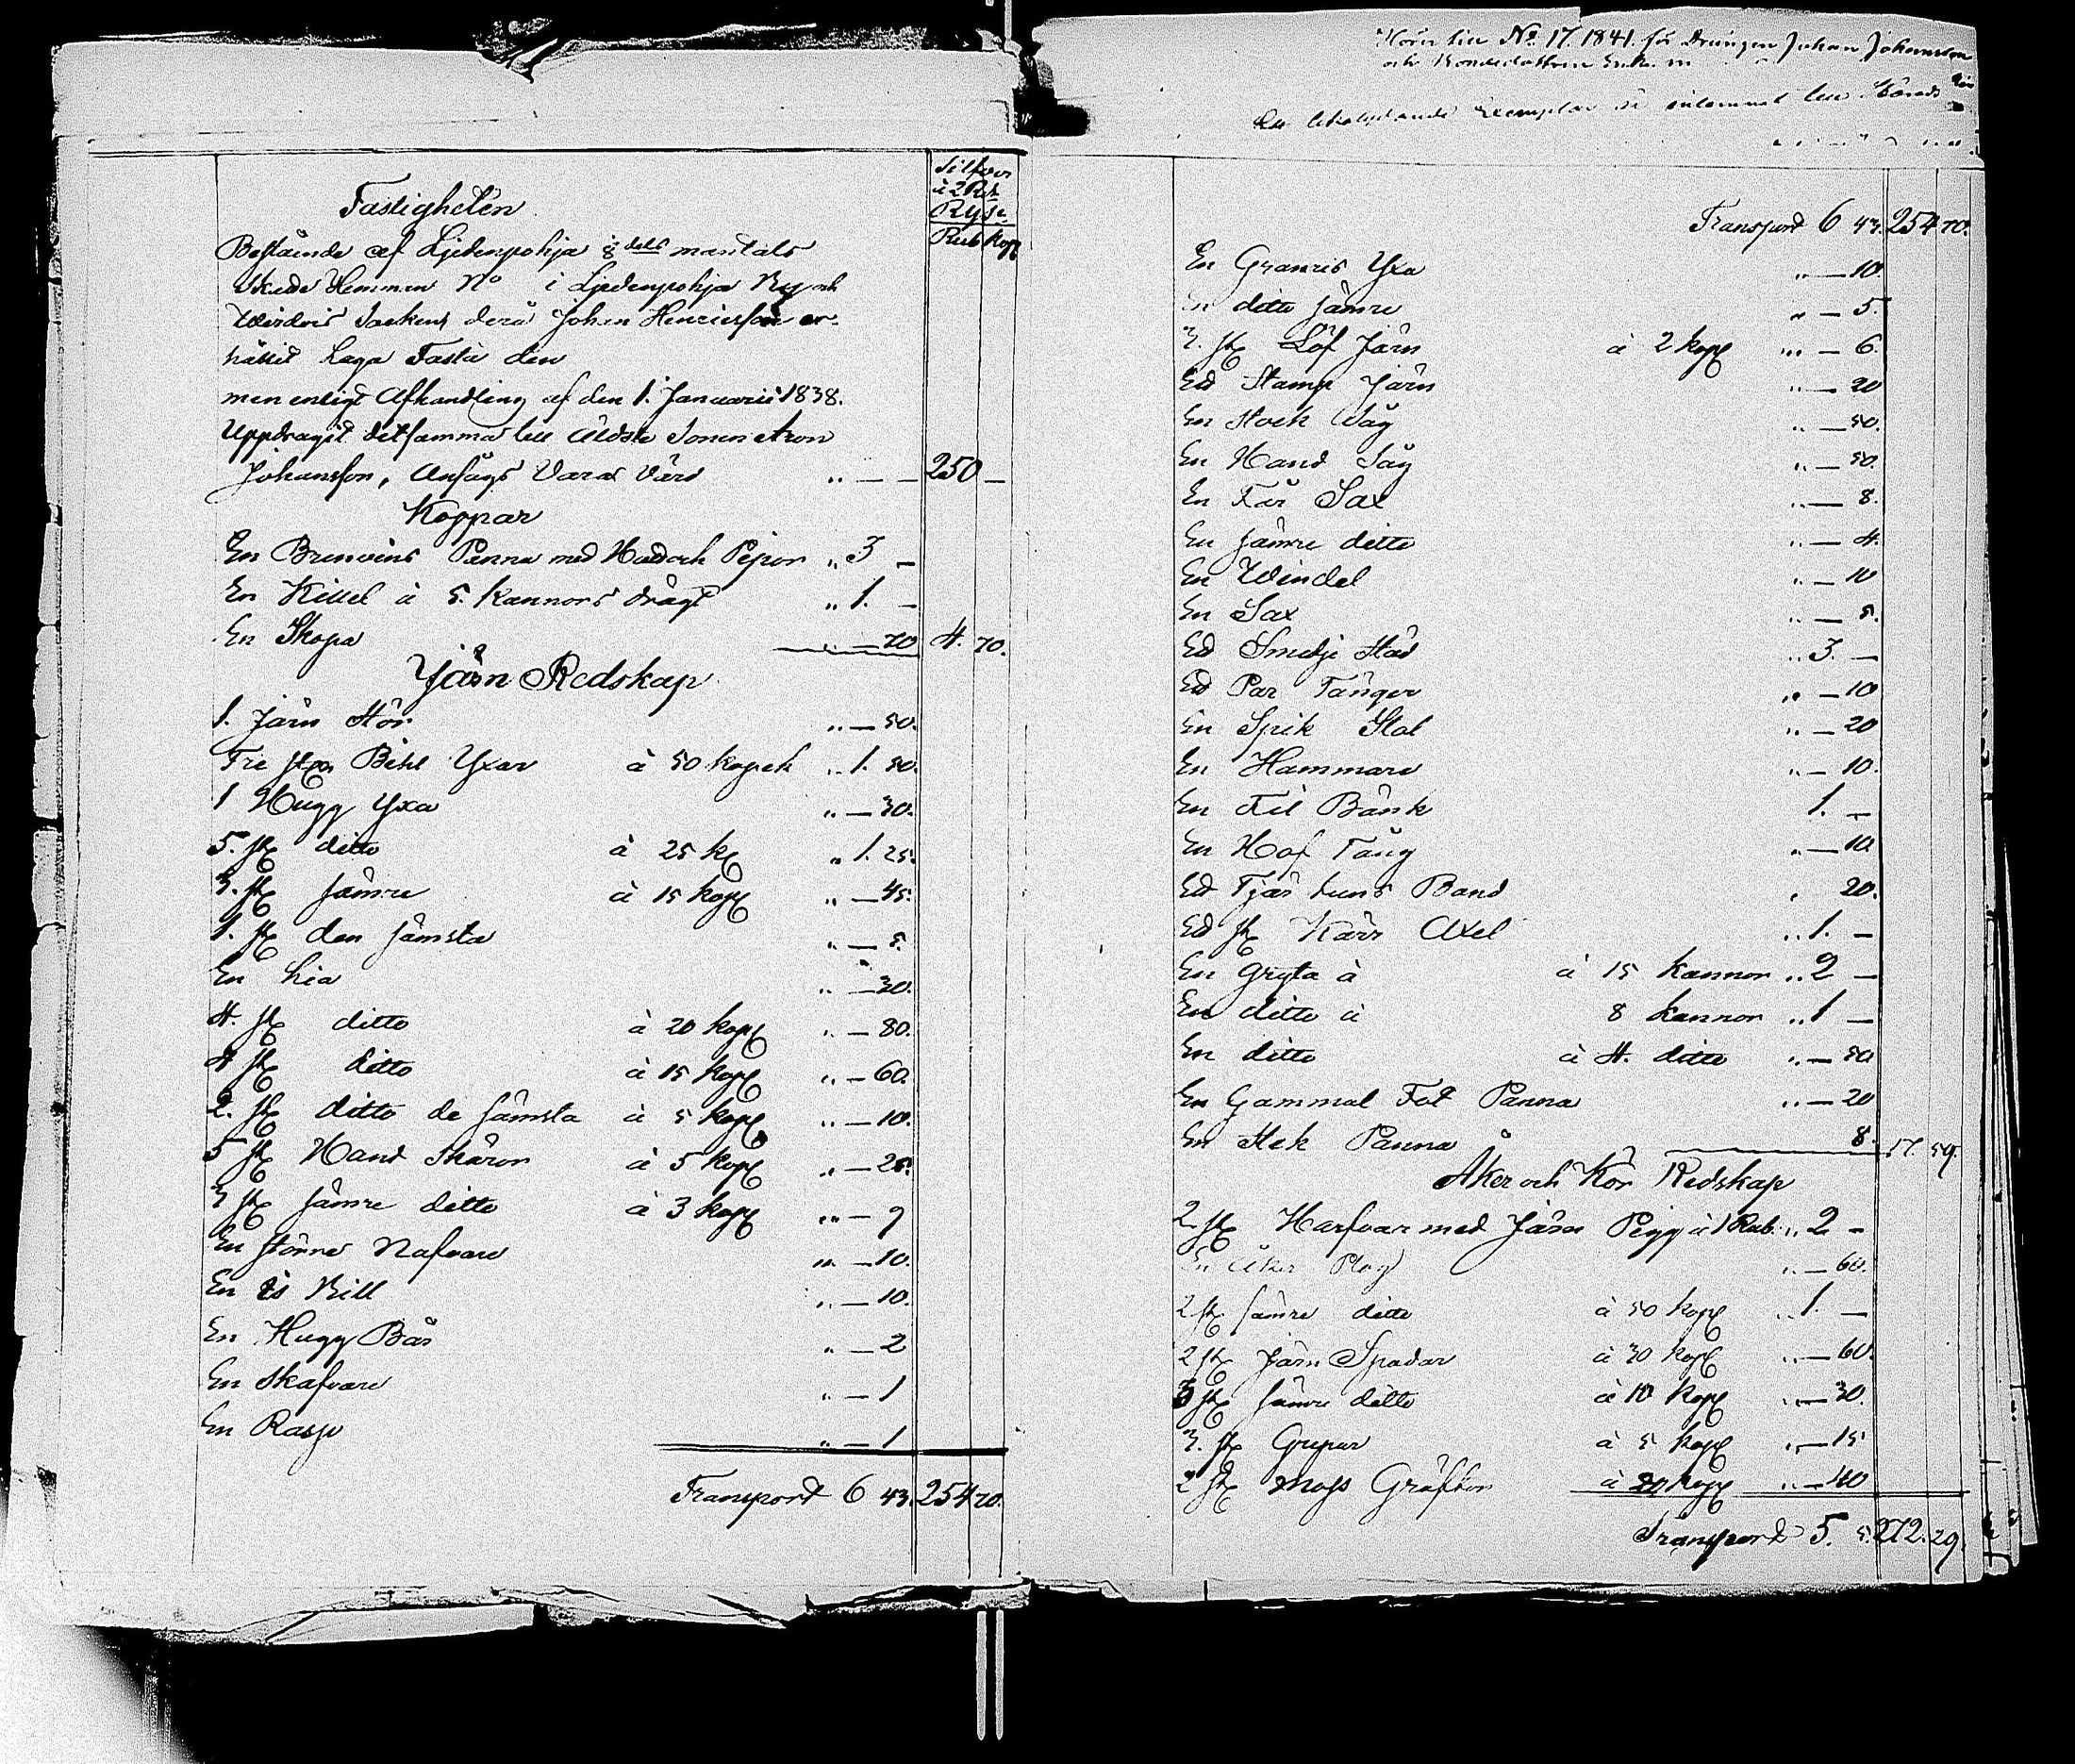 Silfver
à 2 Rd
Rysk
Rub kop
Fastigheten
Bestående af Ljedenpohja 1/8 dels mantals
Skade Hemman No i Ljedenpohja By och
Werdois Sockens derå Johan Henricsson er-
hållit Laga Fasta den
men enligt Afhandling af den 1. Januarii 1838.
Uppdragit detsamma till äldste Sonen Aron
Johansson, Ansågs Vara Värd " — — 250 —
Koppar
En Brenvins Panna med Hatt och Pipor " 3 —
En Kittel à 5. Kannors drägt " 1. —
En Skopa " — 70 4. 70.
Järn Redskap
1. Järn Stör " — 50.
Tre st Bihl Yxor à 50 kopek " 1. 50.
1 Hugg Yxa " — 30.
5. st ditto à 25 k " 1. 25.
3. st sämre à 15 kop " — 45.
1. st den sämsta " — 5.
En Lia " — 30.
4. st ditto à 20 kop " — 80.
4 st ditto à 15 kop " — 60.
2. st ditto de sämsta à 5 kop " — 10.
5 st Hand Skäror à 5 kop " — 25.
3 st sämre ditto à 3 kop " — 9
En större Nafvare " — 10.
En is Bill " — 10.
En Hugg Bår " — 2
En Skafvare " — 1
En Rasp " — 1
Transport 6 43. 254 70.
Hörer till No 17. 1841. för Drängen Johan Johansson
och Bondedottren
Ett likalydande Exemplar är inlemnat till Härads
Transport 6 43. 254 70.
En Granris Yxa " — 10.
En ditto sämre " — 5.
3. st Löf Järn à 2 kop " — 6.
Ett Stamp Järn " — 20
En Stock Såg " — 50.
En Hand Såg " — 50.
En Får Sax " — 8.
En sämre ditto " — 4.
En Windel " — 10
En Sax " — 5.
Ett Smidje Städ " 3. —
Ett Par Tänger " — 10
En Spik Stol " — 20
En Hammare " — 10.
En Fil Bänk 1. —
En Hof Tång " — 10.
Ett Tjär tuns Band " 20.
Ett st Kärr Axel " 1. —
En Gryta à à 15 Kannor " 2 —
En ditto à 8 Kannor " 1 —
En ditto à 4. ditto " — 50
En Gammal Fot Panna " — 20
En Stek Panna 8. 17. 59.
Åker och Kör Redskap
2 st Harfvar med Järn Pigg à 1 Rub. " 2 —
En Åker Plog " — 60.
2 st sämre ditto à 50 kop " 1. —
2 st Järn Spadar à 30 kop " — 60.
3 st sämre ditto à 10 kop " — 30.
3. st Grepar à 5 kop " — 15
2 st Moss Gräftor à 20 kop " — 40
Transport 5. 5. 272. 29.